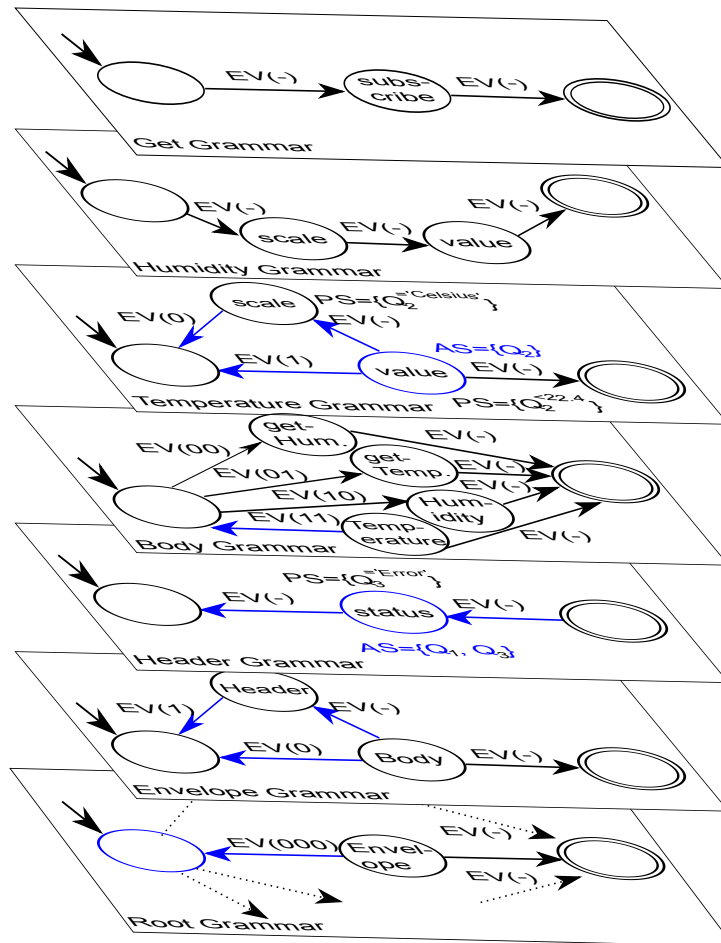 EV(-)
subs-
cribe
EV(-)
Get Grammar
EV(-)
scale
EV(-)
value
EV(-)
Humidity Grammar
EV(0)
scale
PS={Q₂='Celsius'}
EV(-)
EV(1)
AS={Q₂}
value
EV(-)
Temperature Grammar
PS={Q₂<22.4}
EV(00)
get-
Hum.
EV(-)
EV(01)
get-
Temp.
EV(-)
EV(10)
Hum-
idity
EV(-)
EV(11)
Temp-
erature
EV(-)
Body Grammar
PS={Q₃='Error'}
EV(-)
status
EV(-)
AS={Q₁, Q₃}
Header Grammar
EV(1)
Header
EV(-)
EV(0)
Body
EV(-)
Envelope Grammar
EV(000)
Envel-
ope
EV(-)
EV(-)
Root Grammar